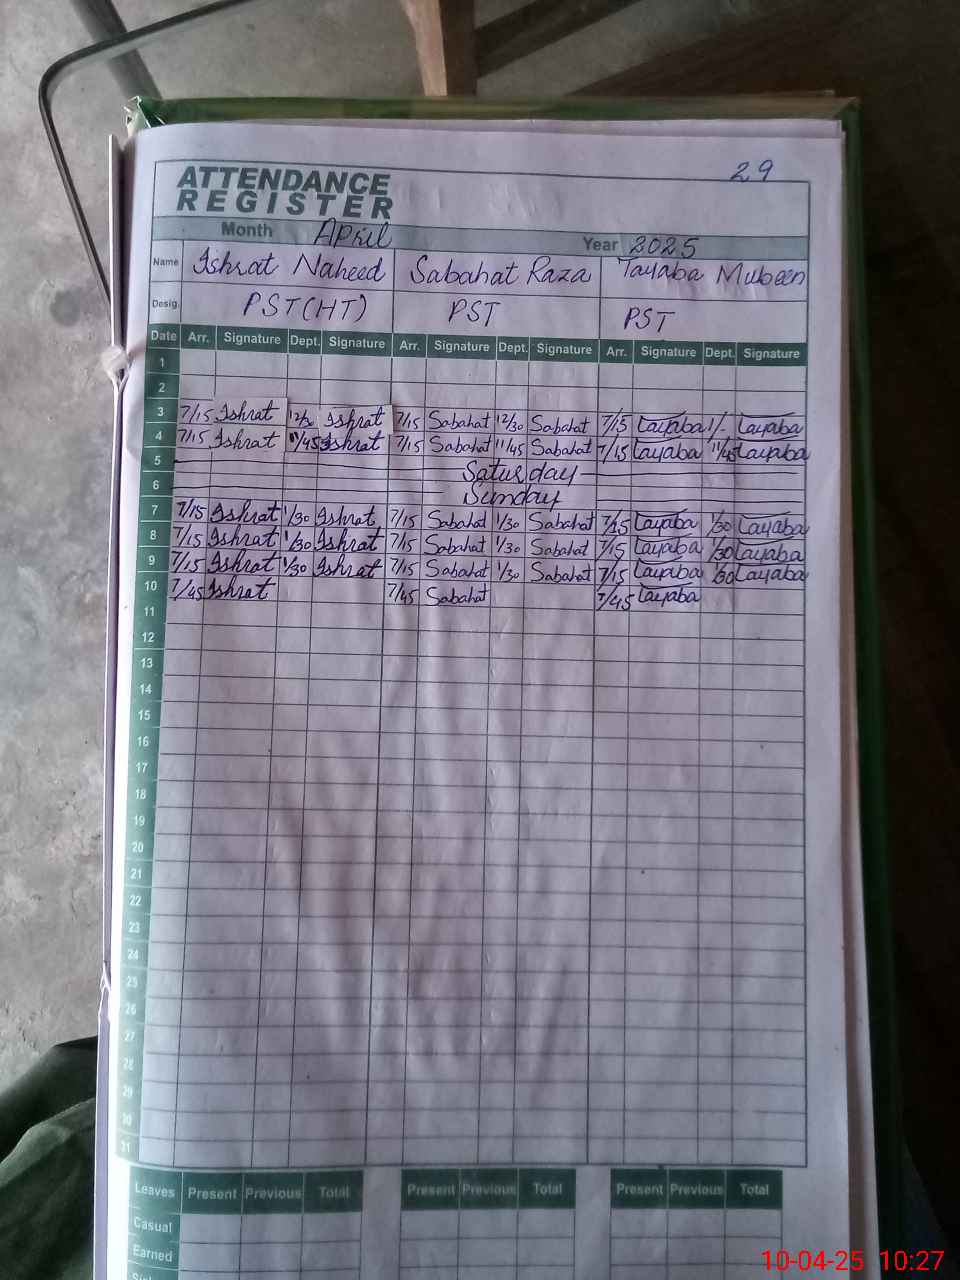 29
ATTENDANCE
REGISTER
Month April Year 2025
Name Ishrat Naheed Sabahat Raza Tayaba Mubeen
Desig. PST(HT) PST PST
Date Arr. Signature Dept. Signature Arr. Signature Dept. Signature Arr. Signature Dept. Signature
1
2
3 7/15 Ishrat 12/30 Ishrat 7/15 Sabahat 12/30 Sabahat 7/15 Tayaba 1/- Tayaba
4 7/15 Ishrat 11/45 Ishrat 7/15 Sabahat 11/45 Sabahat 7/15 Tayaba 11/45 Tayaba
5 Saturday
6 Sunday
7 7/15 Ishrat 1/30 Ishrat 7/15 Sabahat 1/30 Sabahat 7/15 Tayaba 1/30 Tayaba
8 7/15 Ishrat 1/30 Ishrat 7/15 Sabahat 1/30 Sabahat 7/15 Tayaba 1/30 Tayaba
9 7/15 Ishrat 1/30 Ishrat 7/15 Sabahat 1/30 Sabahat 7/15 Tayaba 1/30 Tayaba
10 7/45 Ishrat 7/45 Sabahat 7/45 Tayaba
11
12
13
14
15
16
17
18
19
20
21
22
23
24
25
26
27
28
29
30
31
Leaves Present Previous Total Present Previous Total Present Previous Total
Casual
Earned
10-04-25 10:27